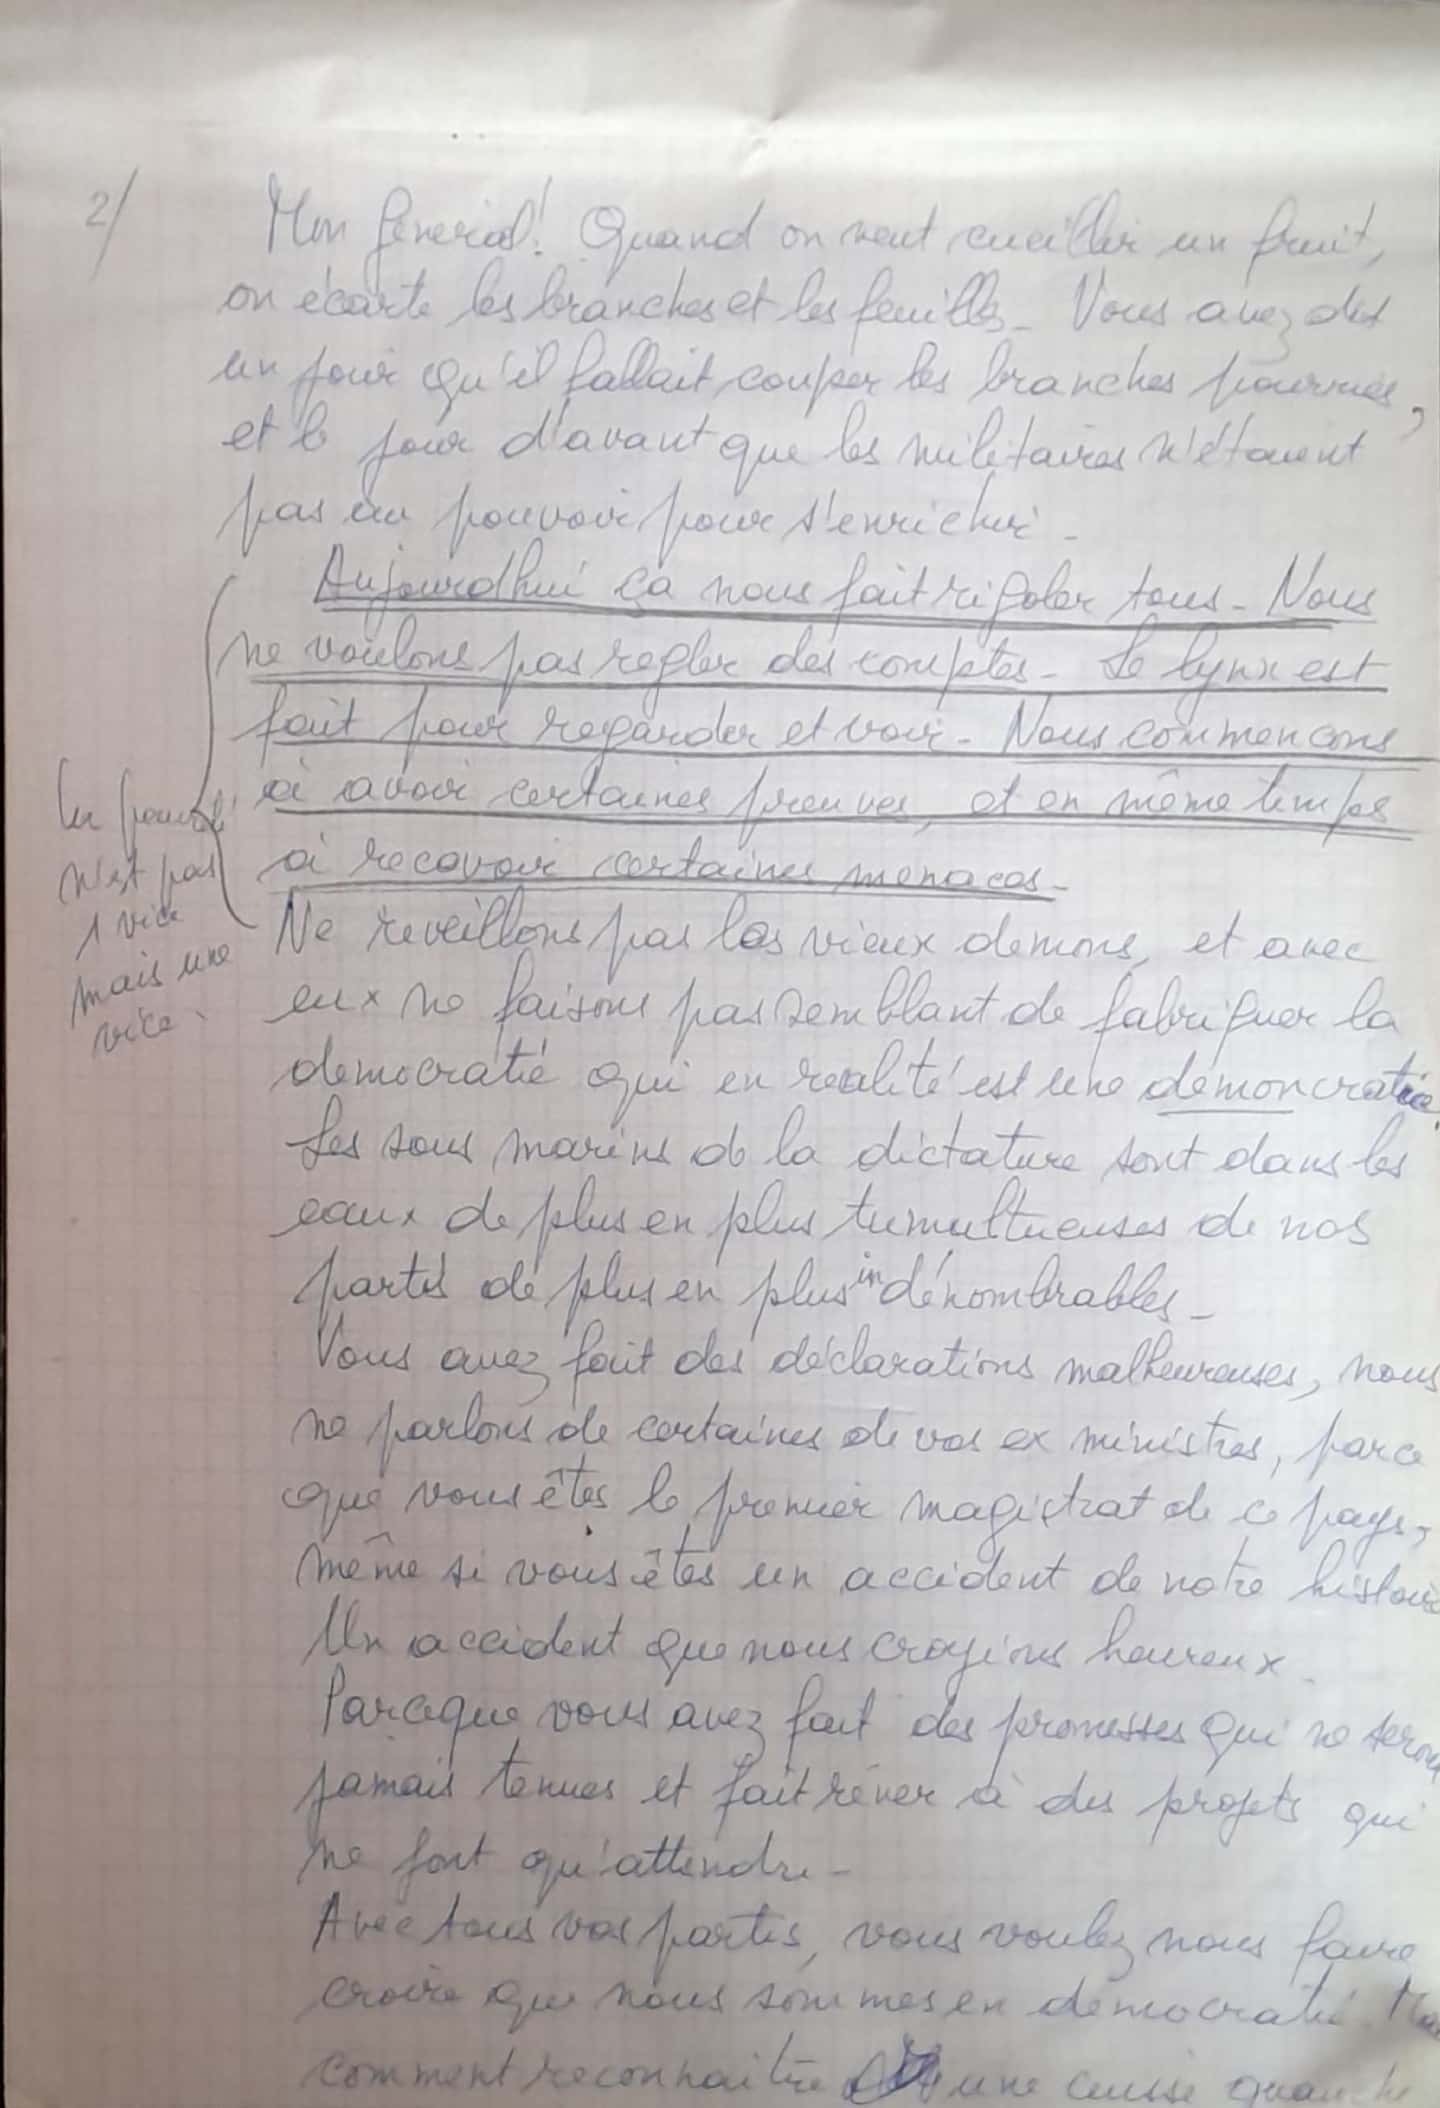 2/
Mon Général! Quand on veut cueillir un fruit,
on écarte les branches et les feuilles_ Vous avez dit
un jour qu'il fallait couper les branches pourries,
et le jour d'avant que les militaires n'étaient
pas au pouvoir pour s'enrichir_
Aujourdhui ça nous fait rigoler tous_ Nous
ne voulons pas regler des comptes_ Le lynx est
fait pour regarder et voir_ Nous commencons
à avoir certaines preuves, et en même temps
à recevoir certaines menaces_
n'est pas
1 vice
mais une
vice
Ne reveillons pas les vieux demons, et avec
eux ne faisons pas semblant de fabriquer la
democratie qui en realité est une démoncratie.
Les sous marins de la dictature sont dans les
eaux de plus en plus tumultueuses de nos
partis de plus en plus indénombrables_
Vous avez fait des déclarations malheureuses, nous
ne parlons de certaines de vos ex ministres, parce
que vous êtes le premier magistrat de ce pays,
même si vous êtes un accident de notre histoire
Un accident que nous croyions heureux.
Parceque vous avez fait des promesses qui ne seront
jamais tenues et fait rêver à des projets qui
ne font qu'attendre_
Avec tous vos partis, vous voulez nous faire
croire que nous sommes en democratie.
comment reconnaitre une cuisse gauche